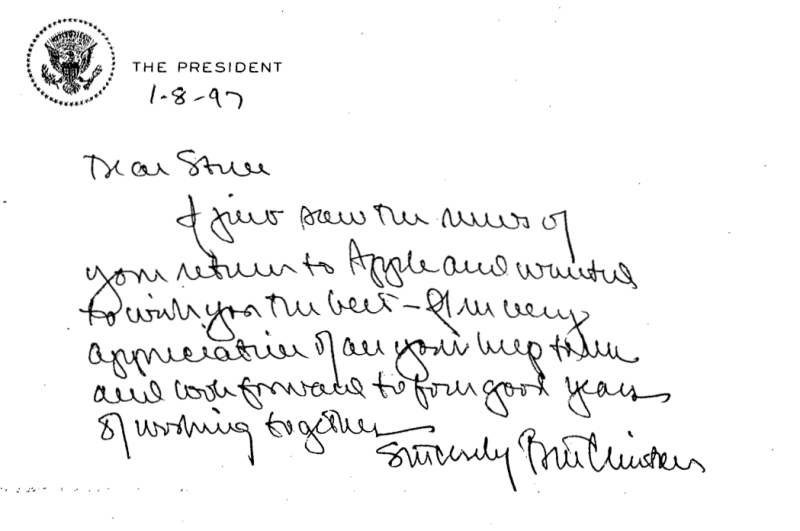 THE PRESIDENT
1-8-97
Dear Steve
I just saw the news of
your return to Apple and wanted
to wish you the best – I'm very
appreciative of all your help to me
and look forward to four good years
of working together
Sincerely Bill Clinton